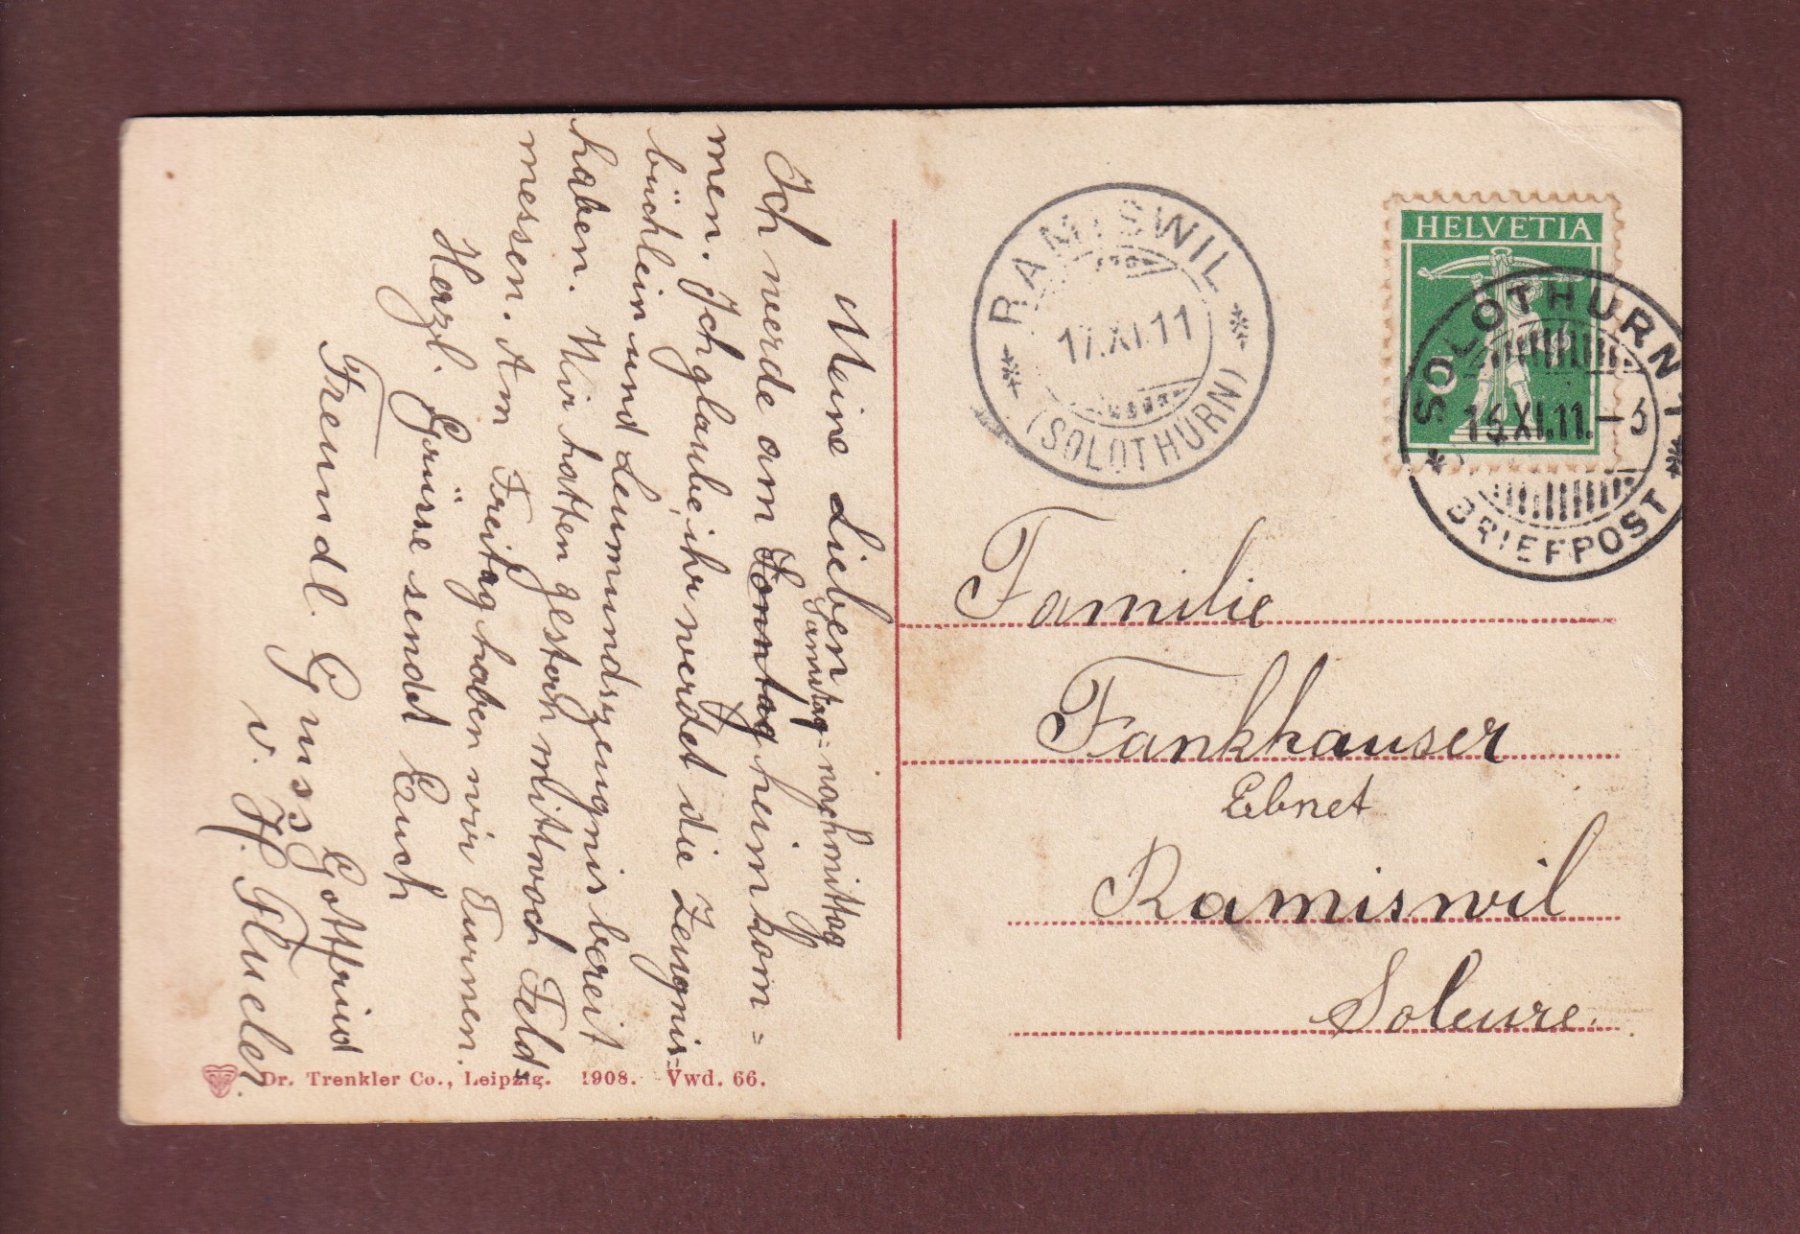 Meine Lieben
Samstag-nachmittag
Ich werde am Sonntag heimkom=
men. Ich glaube, ihr werdet die Zeugnis=
büchlein und Leumundszeugnis bereit
haben. Wir hatten gestern Mittwoch Feld=
messen. Am Freitag haben wir Turnen.
Herzl. Grüsse sendet Euch
Gottfried
Freundl. Gruss
v. H. Flueler.
Dr. Trenkler Co., Leipzig. 1908. Vwd. 66.
RAMISWIL
17.XI.11
(SOLOTHURN)
HELVETIA
5
SOLOTHURN 1
16.XI.11.-3
BRIEFPOST
Familie
Fankhauser
Ebnet
Ramiswil
Soleure.